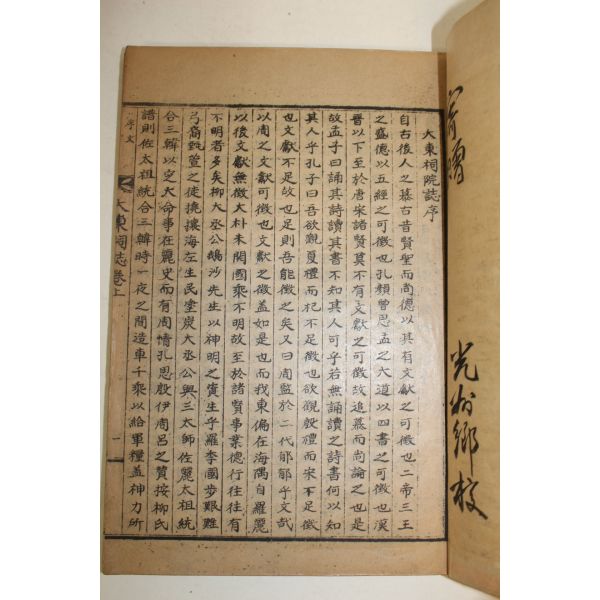 寄贈
光州鄕校
大東祠院誌序
自古後人之慕古昔賢聖而尚德以其有文獻之可徵也二帝三王
之盛德以五經之可徵也孔顔曾思孟之大道以四書之可徵也漢
晉以下至於唐宋諸賢莫不有文獻之可徵故追慕而尚論之也是
故孟子曰誦其詩讀其書不知其人可乎若無誦讀之詩書何以知
其人乎孔子曰吾欲觀夏禮而杞不足徵也欲觀殷禮而宋不足徵
也文獻不足故也足則吾能徵之矣又曰周監於二代郁郁乎文哉
以周之文獻可徵也文獻之徵盖如是也而我東偏在海隅自羅麗
以後文獻無徵大朴未開國乘不明故至於諸賢事業德行往往有
不明者多矣柳大丞公鵠沙先生以神明之資生乎羅季國步艱難
弓裔甄萱之徒撓攘海左生民塗炭大丞公與三太師佐麗太祖統
合三韓以定大命事在麗史而有周情孔思殷伊周呂之贊按柳氏
譜則佐太祖統合三韓時一夜之間造車千乘以給軍糧盖神力所
序文
大東祠誌卷上
一